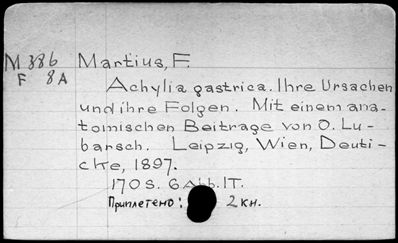 M 386 Martius, F.
F 8A
Achylia gastrica. Ihre Ursachen
und ihre Folgen. Mit einem ana-
tomischen Beitrage von O. Lu-
barsch. Leipzig, Wien, Deuti-
cke, 1897.
170 S. 6 Abb. 1T.
Приплетено: 2 кн.